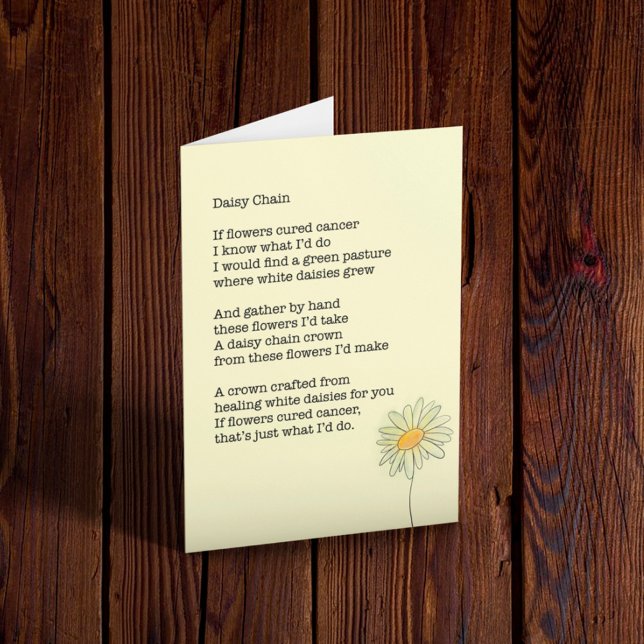 Daisy Chain
If flowers cured cancer
I know what I'd do
I would find a green pasture
where white daisies grew
And gather by hand
these flowers I'd take
A daisy chain crown
from these flowers I'd make
A crown crafted from
healing white daisies for you
If flowers cured cancer,
that's just what I'd do.